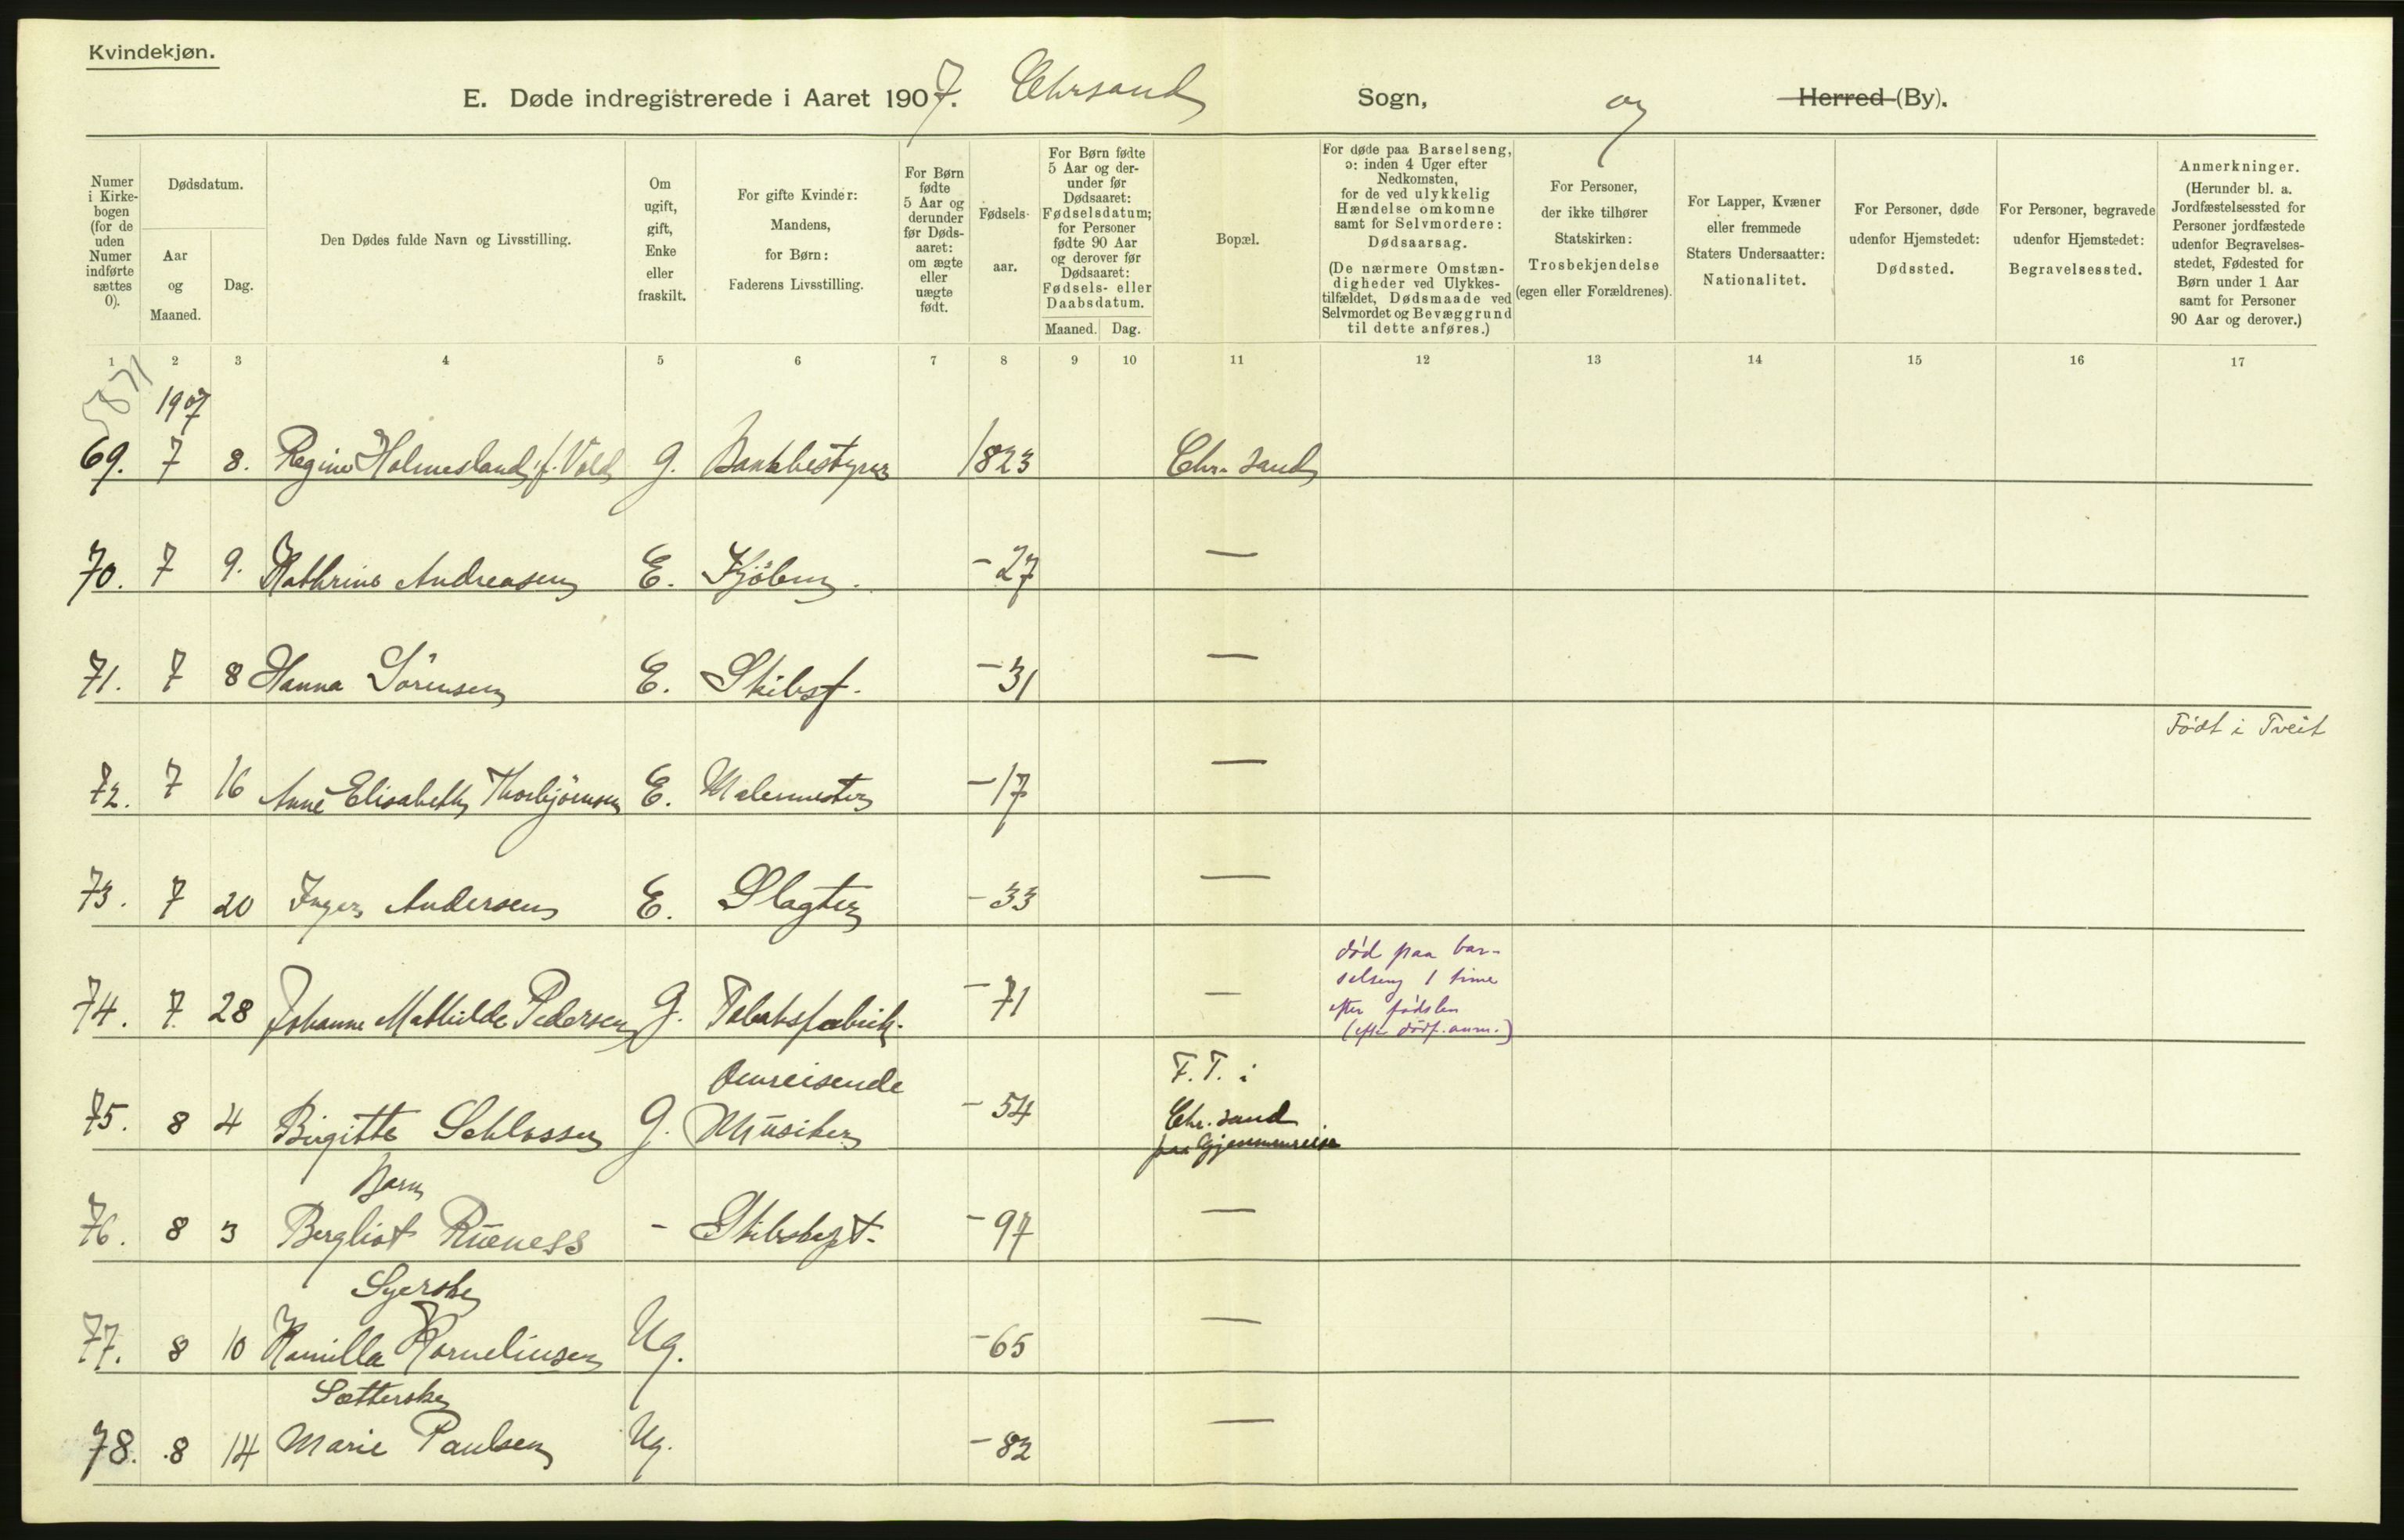 Kvindekjøn.
E. Døde indregistrerede i Aaret 1907. Chrsand Sogn, og Herred (By).
Numer i Kirke-bogen (for de uden Numer indførte sættes 0).
Dødsdatum.
Aar og Maaned.
Dag.
Den Dødes fulde Navn og Livsstilling.
Om ugift, gift, Enke eller fraskilt.
For gifte Kvinder: Mandens, for Børn: Faderens Livsstilling.
For Børn fødte 5 Aar og derunder før Døds-aaret: om ægte eller uægte født.
Fødsels-aar.
For Børn fødte 5 Aar og der-under før Dødsaaret: Fødselsdatum; for Personer fødte 90 Aar og derover før Dødsaaret: Fødsels- eller Daabsdatum.
Maaned. Dag.
Bopæl.
For døde paa Barselseng, ɔ: inden 4 Uger efter Nedkomsten, for de ved ulykkelig Hændelse omkomne samt for Selvmordere: Dødsaarsag. (De nærmere Omstæn-digheder ved Ulykkes-tilfældet, Dødsmaade ved Selvmordet og Bevæggrund til dette anføres.)
For Personer, der ikke tilhører Statskirken: Trosbekjendelse (egen eller Forældrenes).
For Lapper, Kvæner eller fremmede Staters Undersaatter: Nationalitet.
For Personer, døde udenfor Hjemstedet: Dødssted.
For Personer, begravede udenfor Hjemstedet: Begravelsessted.
Anmerkninger. (Herunder bl. a. Jordfæstelsessted for Personer jordfæstede udenfor Begravelses-stedet, Fødested for Børn under 1 Aar samt for Personer 90 Aar og derover.)
1 2 3 4 5 6 7 8 9 10 11 12 13 14 15 16 17
1907
69. 7 8. Regine Holmesland, f. Vold G. Bankbestyrer 1823 Chr.sand
70. 7 9. Kathrine Andreasen E. Kjöbm. -27 —
71. 7 8 Hanna Sörensen E. Skibsf. -31 —
Födt i Tveit
72. 7 16 Anne Elisabeth Thorbjörnsen E. Malermester -17 —
73. 7 20 Inger Andersen E. Slagter -33 —
död paa bar-
selseng 1 time
74. 7. 28 Johanne Mathilde Pedersen G. Tobaksfabrik. -71 — efter födslen
(efter dödf. anm.)
Omreisende F. T. i
75. 8 4 Birgitte Schlosser G. Musiker -54 Chr.sand
paa Gjennemreise
Barn
76. 8 3 Bergliot Rüeness - Skibskapt. -97 —
Syerske
77. 8 10 Kamilla Korneliusen Ug. -65 —
Sætterske
78. 8 14 Marie Paulsen Ug. -82 —